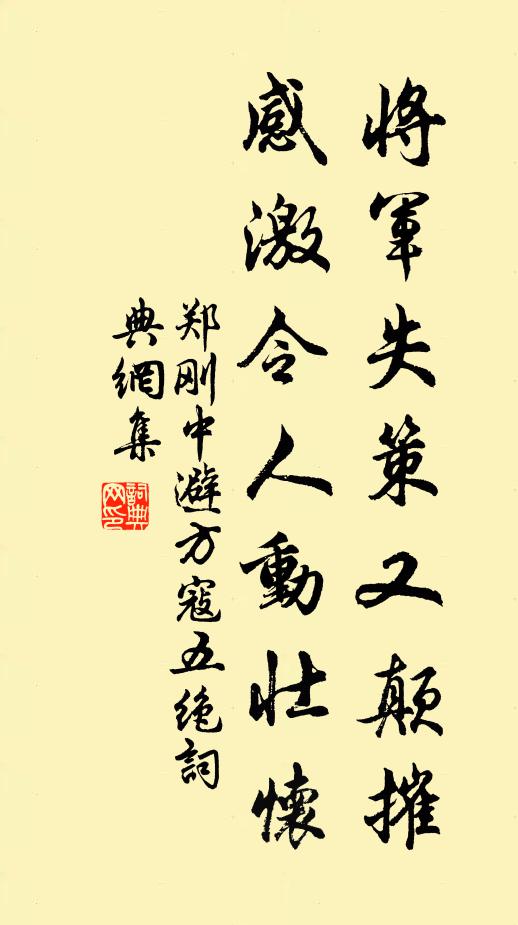 將軍失策又顛摧
感激令人動壯懷
郑刚中避方寇五绝詞
典網集
詞典网印